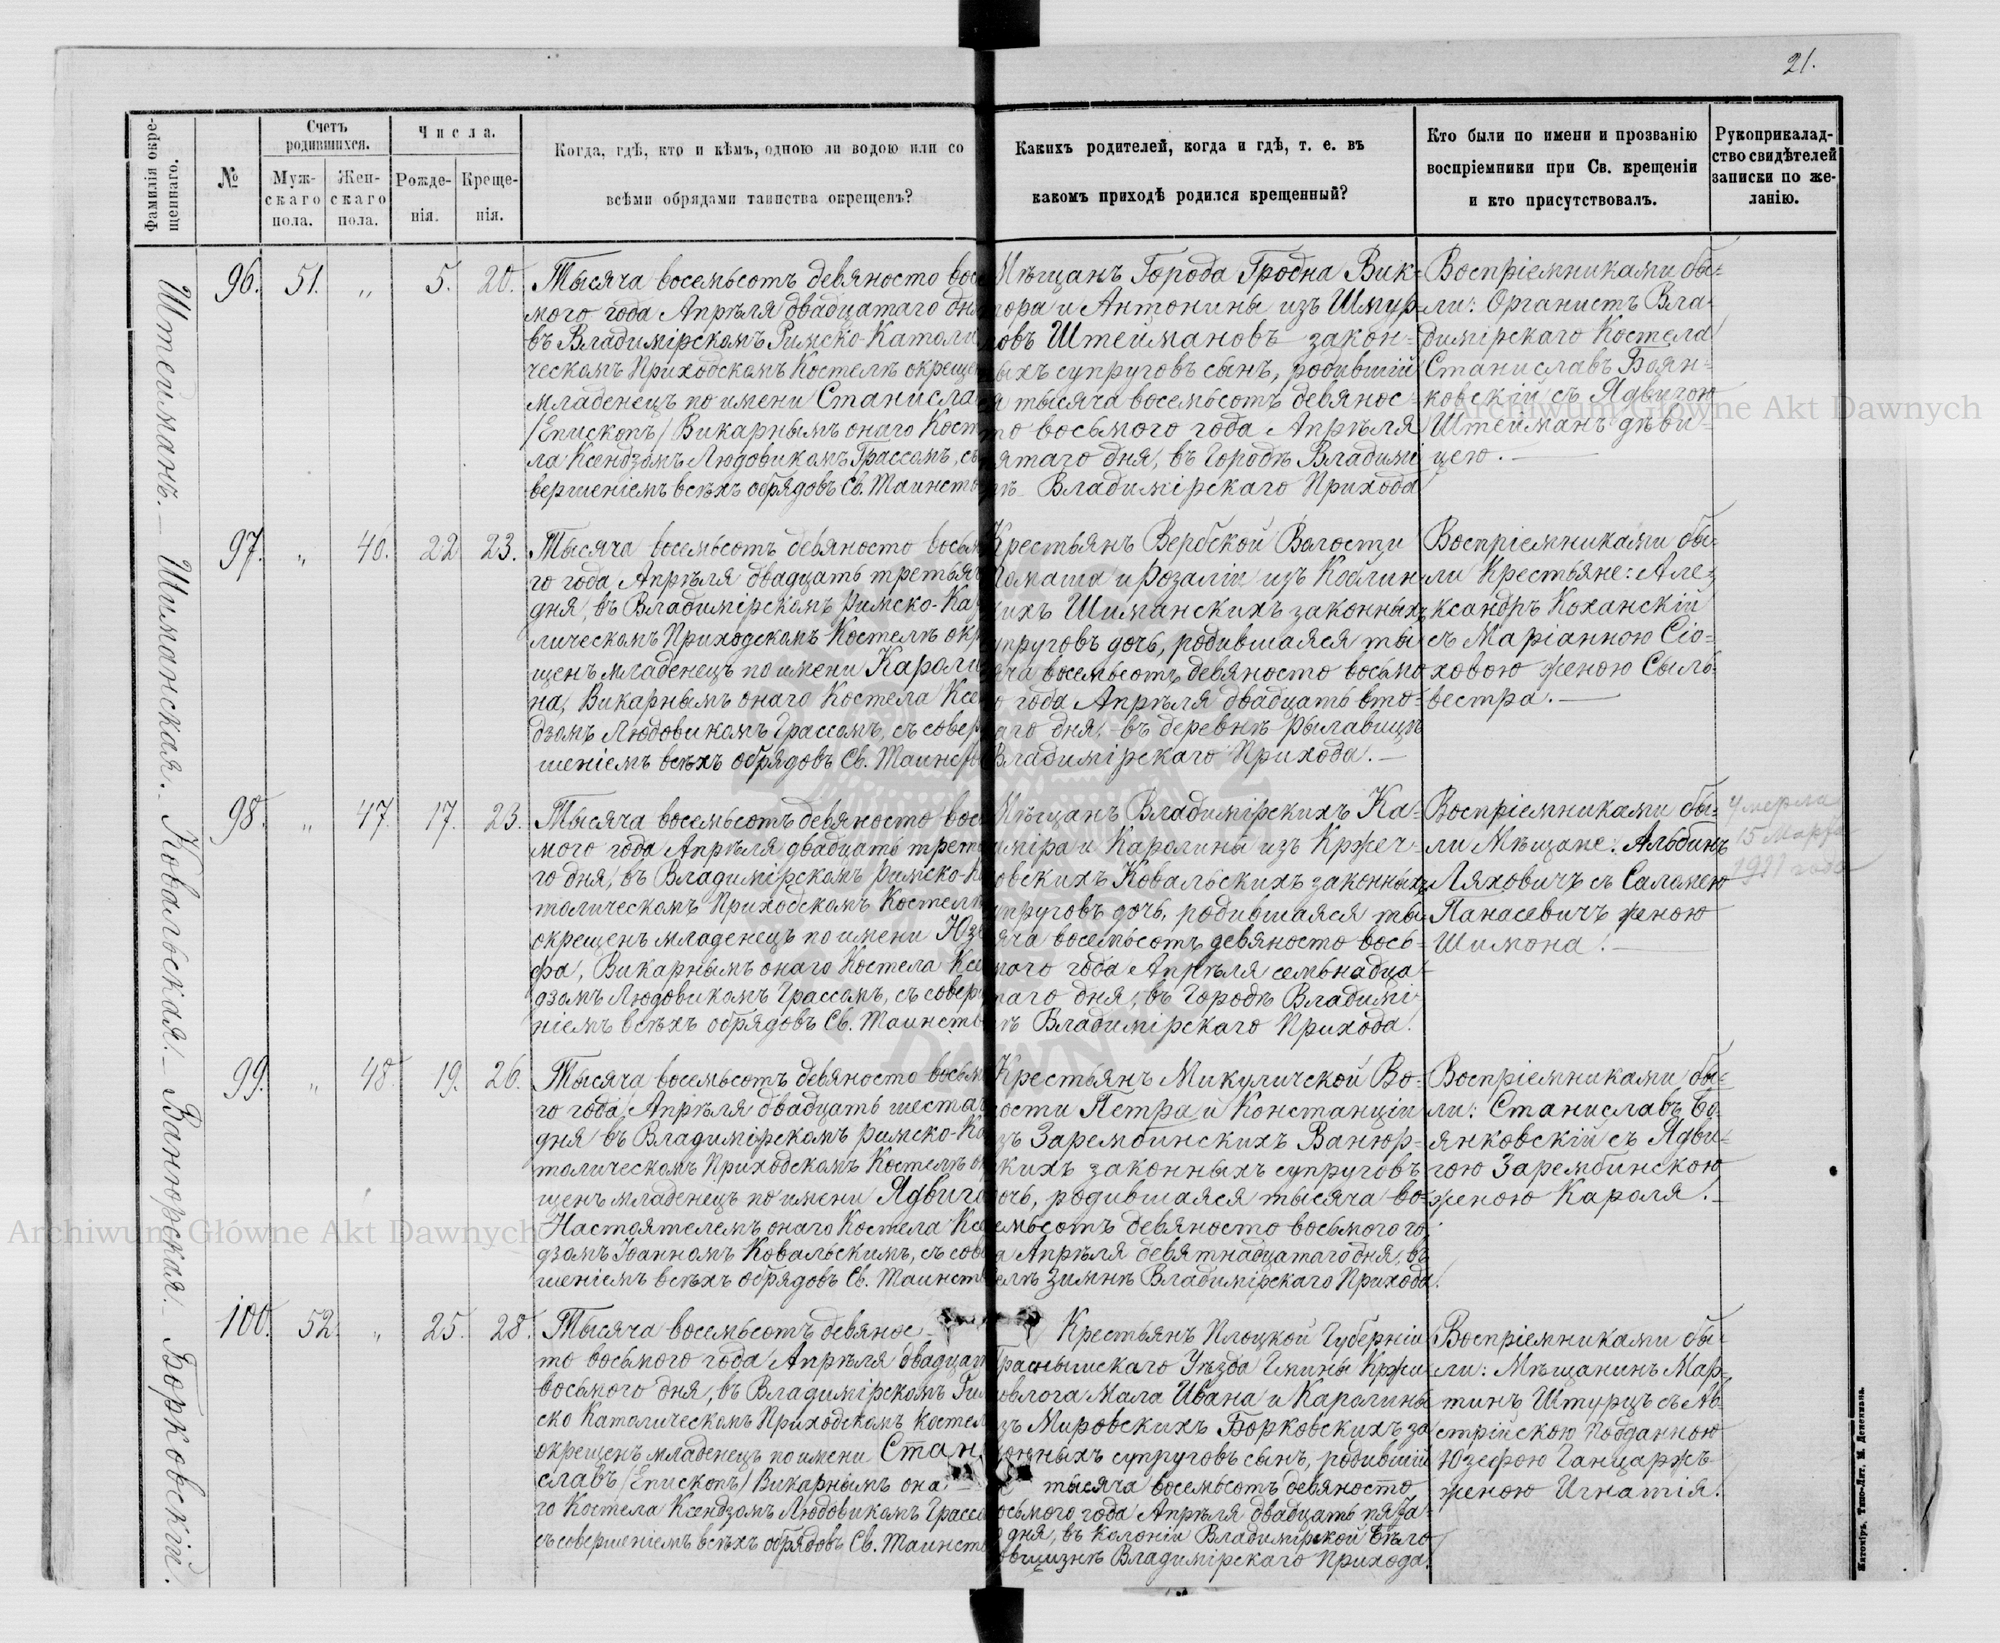 21.
Фамилія окре-
щеннаго.
№
Счетъ
родившихся.
Муж-
скаго
пола.
Жен-
скаго
пола.
Числа.
Рожде-
нія.
Креще-
нія.
Когда, гдѣ, кто и кѣмъ, одною ли водою или со
всѣми обрядами таинства окрещенъ?
Какихъ родителей, когда и гдѣ, т. е. въ
какомъ приходѣ родился крещенный?
Кто были по имени и прозванію
воспріемники при Св. крещеніи
и кто присутствовалъ.
Рукоприкалад-
ство свидѣтелей
записки по же-
ланію.
Штейманъ. — Шиманская. — Ковальская. — Ванюрская. — Борковскій.
96. 51. „ 5. 20.
Тысяча восемьсотъ девяносто вось
мого года Апрѣля двадцатаго дня
въ Владимірскомъ Римско-Католи
ческомъ Приходскомъ Костелѣ окреще
младенецъ по имени Станисла
/Епископъ/ Викарнымъ онаго Косте
ла Ксендзомъ Людовикомъ Грассомъ, съ
вершеніемъ всѣхъ обрядовъ Св. Таинств
Мѣщанъ Города Гродна Вик-
тора и Антонины изъ Шмур-
ловъ Штеймановъ закон-
ныхъ супруговъ сынъ, родившій
ся тысяча восемьсотъ девянос-
то восьмого года Апрѣля
пятаго дня, въ Городѣ Владимі
рѣ Владимірскаго Прихода
Воспріемниками бы-
ли: Органистъ Вла-
димірскаго Костела
Станиславъ Боян-
ковскій съ Ядвигою
Штейманъ дѣви-
цею. —
97. „ 46. 22 23.
Тысяча восемьсотъ девяносто восьм
го года Апрѣля двадцать третьяг
дня, въ Владимірскомъ Римско-Ка
лическомъ Приходскомъ Костелѣ окр
щенъ младенецъ по имени Кароли
на, Викарнымъ онаго Костела Ксе
дзомъ Людовикомъ Грассомъ, съ совер
шеніемъ всѣхъ обрядовъ Св. Таинств
Крестьянъ Вербской Волости
Томаша и Розаліи изъ
кихъ Шиманскихъ законныхъ
супруговъ дочь, родившаяся ты-
сяча восемьсотъ девяносто восьмо
го года Апрѣля двадцать вто-
раго дня, въ деревнѣ Рылавицѣ
Владимірскаго Прихода. —
Воспріемниками бы-
ли Крестьяне: Але-
ксандръ Коханскій
съ Маріанною Сіо-
ховою женою Сыль-
вестра. —
98. „ 47. 17. 23.
Тысяча восемьсотъ девяносто вось
мого года Апрѣля двадцать треть
го дня, въ Владимірскомъ Римско-К
толическомъ Приходскомъ Костелѣ
окрещенъ младенецъ по имени Юзе
фа, Викарнымъ онаго Костела Ксе
дзомъ Людовикомъ Грассомъ, съ совер
ніемъ всѣхъ обрядовъ Св. Таинств
Мѣщанъ Владимірскихъ Ка-
зиміра и Каролины изъ Кржеч-
ковскихъ Ковальскихъ законныхъ
супруговъ дочь, родившаяся ты-
сяча восемьсотъ девяносто вось-
мого года Апрѣля семьнадца-
таго дня, въ Городѣ Владимі
рѣ Владимірскаго Прихода.
Воспріемниками бы-
ли Мѣщане: Альбинъ
Ляховичъ съ Саломею
Панасевичъ женою
Шимона. —
Умерла
15 Марта
1921 года
99. „ 48. 19. 26.
Тысяча восемьсотъ девяносто восьм
го года, Апрѣля двадцать шестаг
дня въ Владимірскомъ Римско-Ка
толическомъ Приходскомъ Костелѣ ок
щенъ младенецъ по имени Ядвига
Настоятелемъ онаго Костела Ксе
дзомъ Іоанномъ Ковальскимъ, съ сове
шеніемъ всѣхъ обрядовъ Св. Таинств
Крестьянъ Микуличской Во-
лости Петра и Констанціи
изъ Зарембинскихъ Ванюр-
скихъ законныхъ супруговъ
дочь, родившаяся тысяча во-
семьсотъ девяносто восьмого го-
да Апрѣля девятнадцатаго дня, въ
селѣ Зимнѣ Владимірскаго Прихода.
Воспріемниками бы-
ли: Станиславъ Бо-
янковскій съ Ядви-
гою Зарембинскою
женою Кароля. —
100. 52. „ 25. 28.
Тысяча восемьсотъ девянос-
то восьмого года Апрѣля двадцат
восьмого дня, въ Владимірскомъ Рим
ско Католическомъ Приходскомъ Костел
окрещенъ младенецъ по имени Стан
славъ /Епископъ/ Викарнымъ она-
го Костела Ксендзомъ Людовикомъ Грассо
съ совершеніемъ всѣхъ обрядовъ Св. Таинств
Крестьянъ Плоцкой Губерніи
Праснышскаго Уѣзда Гмины Кржи-
новлога Мала Ивана и Каролины
изъ Мировскихъ Борковскихъ за
конныхъ супруговъ сынъ, родившій
тысяча восемьсотъ девяносто
восьмого года Апрѣля двадцать пята
го дня, въ колоніи Владимірской Бѣло
Владимірскаго Прихода.
Воспріемниками бы-
ли: Мѣщанинъ Мар-
тинъ Штурцъ съ Ав-
стрійскою Подданною
Юзефою Ганцаржъ
женою Игнатія.
Житоміръ. Типо-Лит. М. Дененмана.
Archiwum Główne Akt Dawnych
Archiwum Główne Akt Dawnych